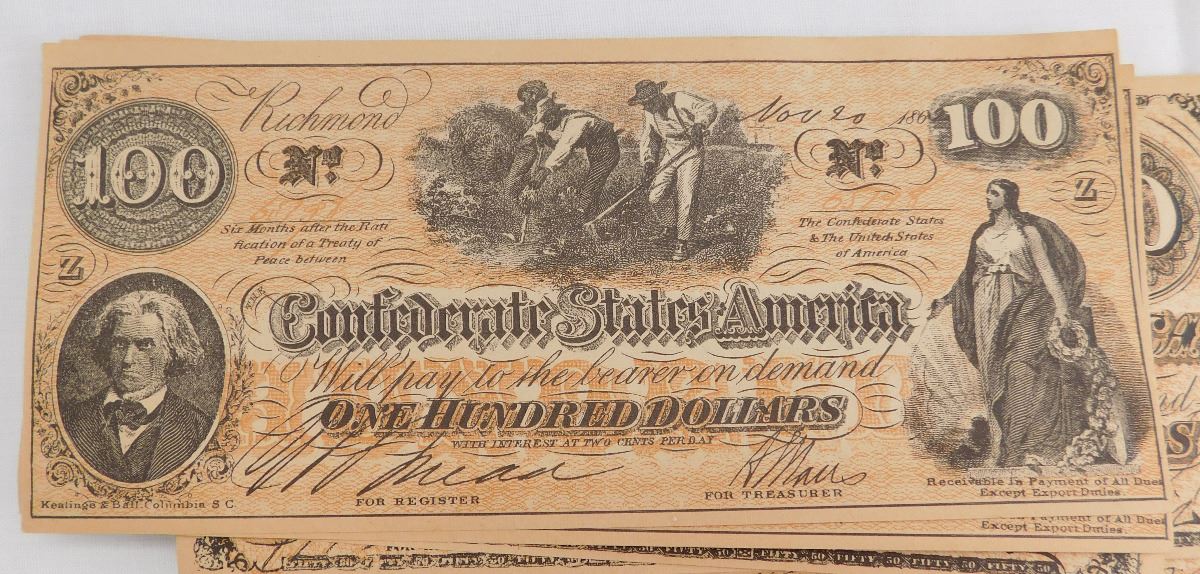 Richmond Nov 20 186
100
100
No.
No.
Z
Z
Six Months after the Rati
fication of a Treaty of
Peace between
The Confederate States
& The United States
of America
Confederate States America
Will pay to the bearer on demand
ONE HUNDRED DOLLARS
WITH INTEREST AT TWO CENTS PER DAY
FOR REGISTER
FOR TREASURER
Keatinge & Ball. Columbia S C.
Receivable In Payment of All Dues
Except Export Duties.
Payment of All Due
Except Export Duties.
FOR
FIFTY 50 FIFTY 50 FIFTY 50 FIFTY 50